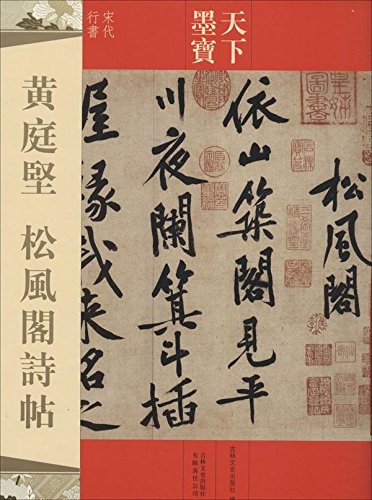 天下
墨寶
宋代
行書
黃庭堅 松風閣詩帖
松風閣
依山築閣見平
川夜闌箕斗插
屋椽我來名之
吉林文史出版社
吉林文史出版社
有限責任公司